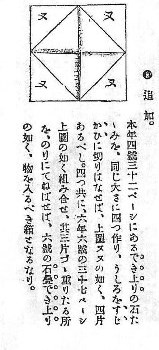 ヌ ヌ
ヌ ヌ
追加。
本年四號三十二ページにあるでき上りの石た
ゝみを、同じ大きさに四つ作り、うしろをすぢ
かひに切りはなせば、上圖ヌヌの如く、四片
あるべし。四つ共に、六年六號の三十七ページ
上圖の如く組み合せ、共三片づゝ重りたる所
を、のりにてねばせば、六號の石疊でき上り
の如く、物を入るべき箱となるなり。